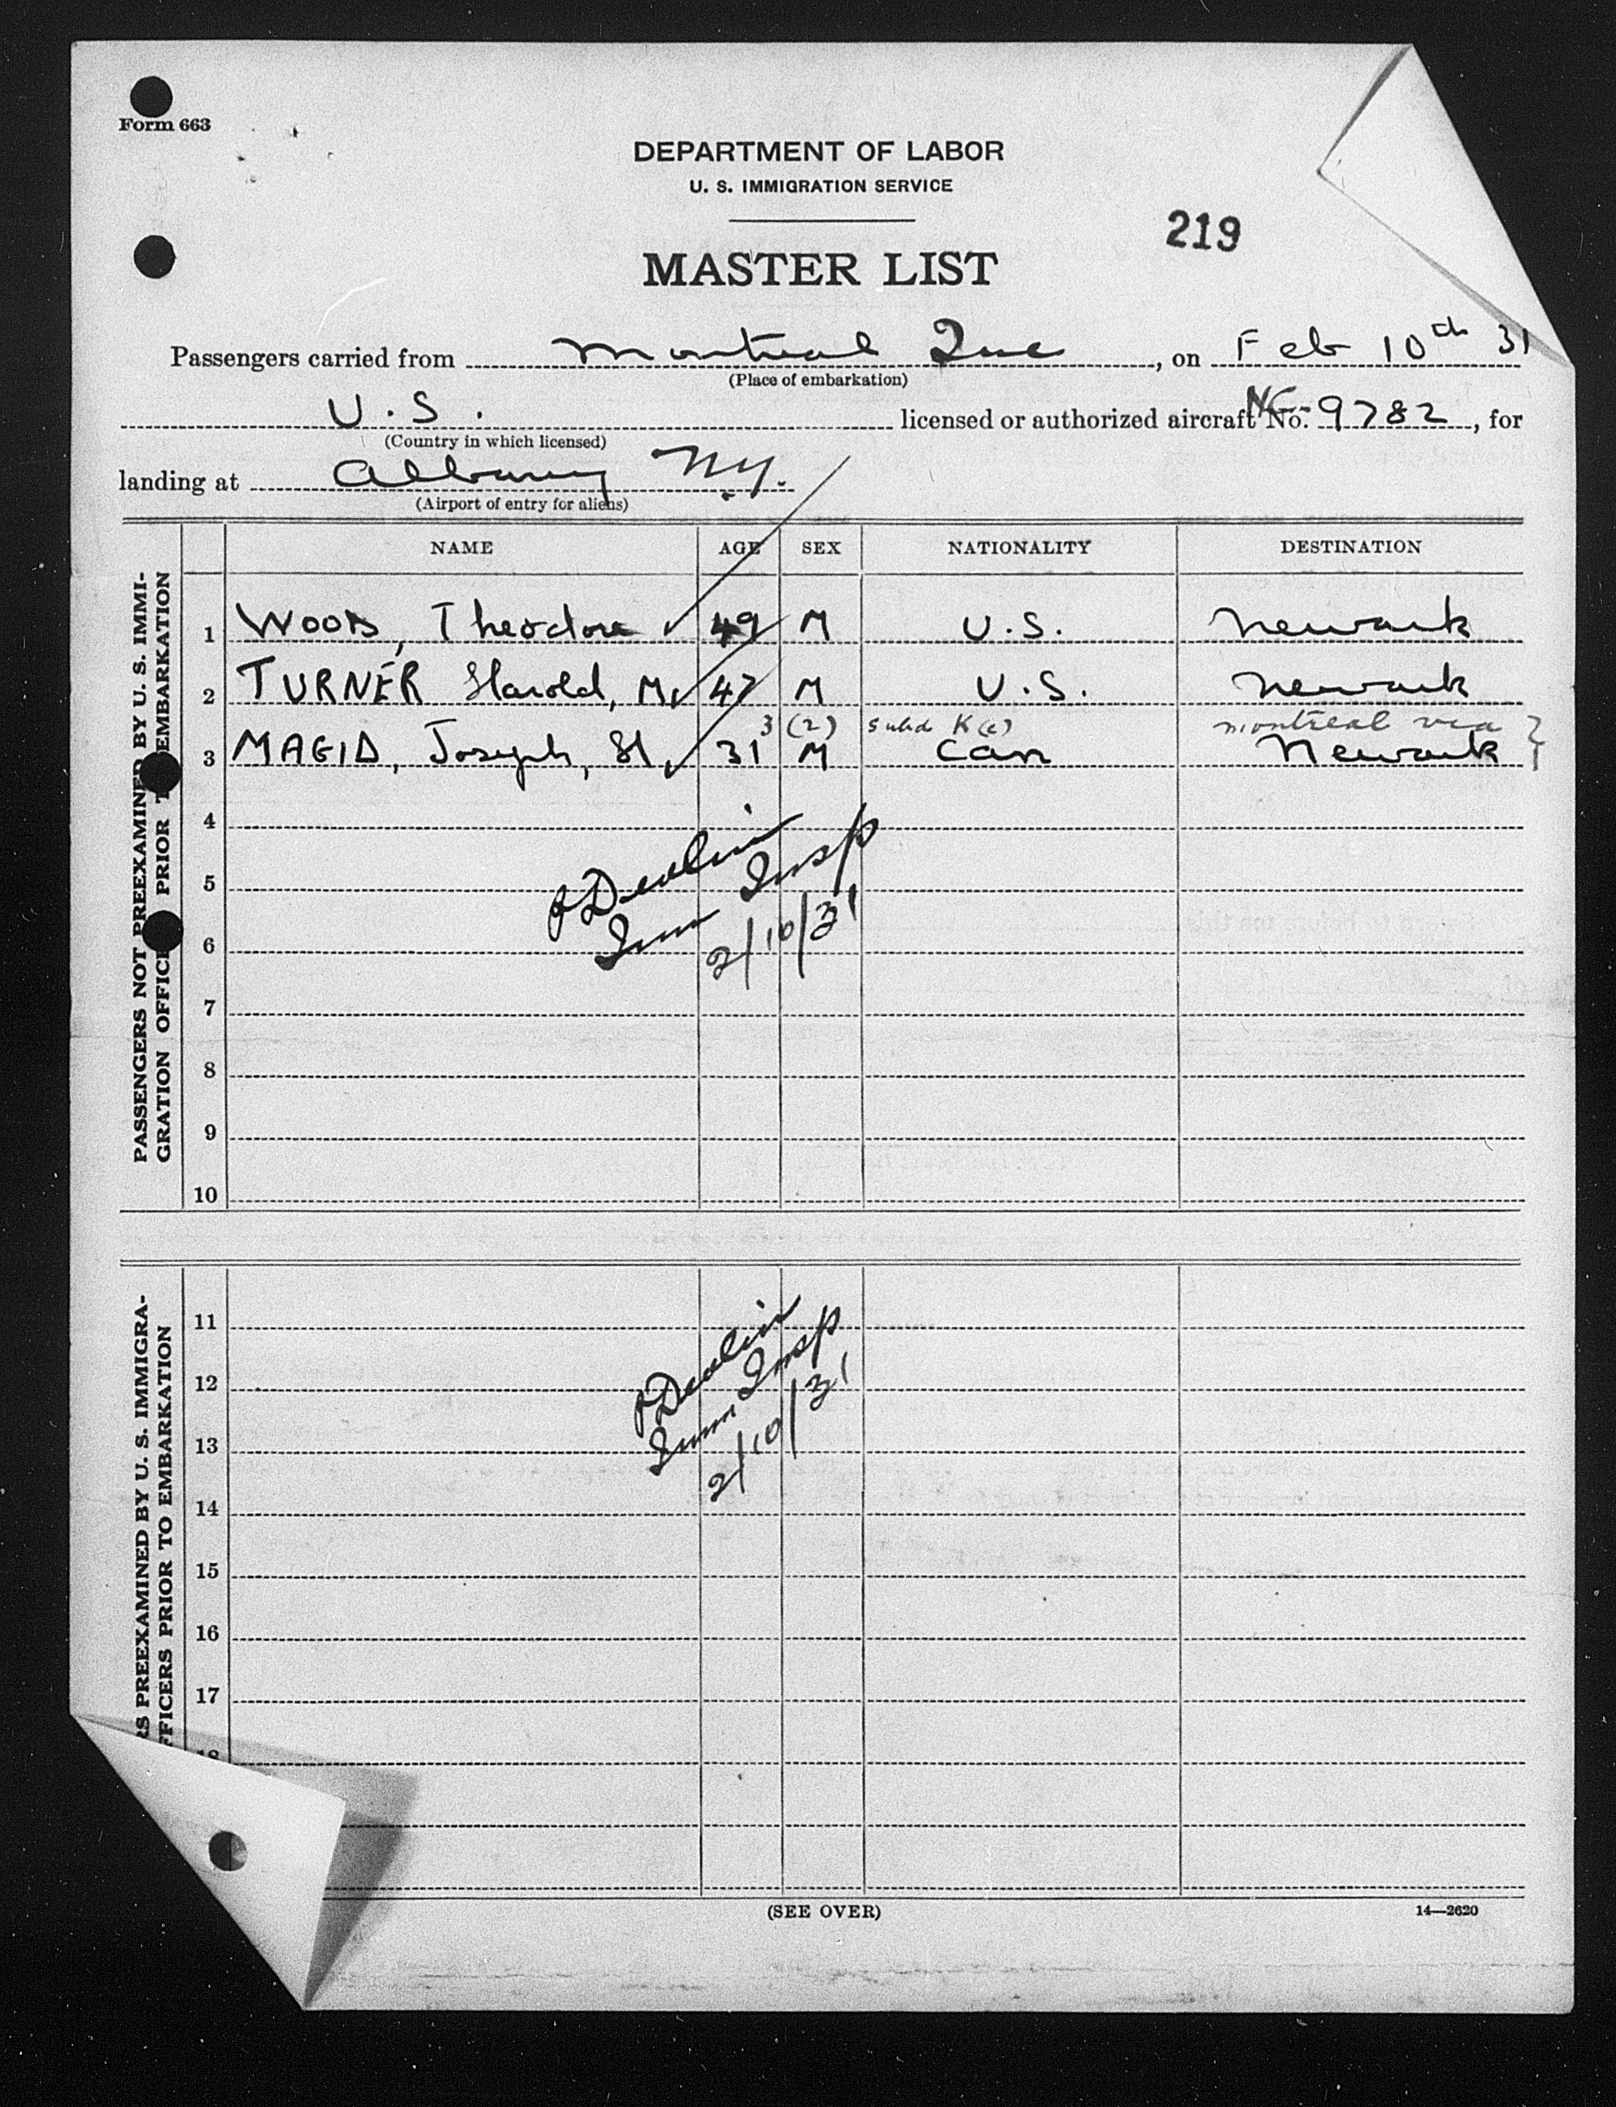 Form 663
DEPARTMENT OF LABOR
U. S. IMMIGRATION SERVICE
219
MASTER LIST
Passengers carried from Montreal Que, on Feb 10th 31
(Place of embarkation)
U. S. licensed or authorized aircraft No. NC-9782, for
(Country in which licensed)
landing at Albany N.Y.
(Airport of entry for aliens)
NAME AGE SEX NATIONALITY DESTINATION
PASSENGERS NOT PREEXAMINED BY U. S. IMMI-
GRATION OFFICE PRIOR T EMBARKATION
1 WOODS, Theodore 49 M U.S. Newark
2 TURNER Harold, M. 47 M U.S. Newark
3 (2) Subd K(e) Montreal via
3 MAGID, Joseph, 31 M Can Newark
4
5
6
7
8
9
10
Devlin
Imm Insp
2/10/31
RS PREEXAMINED BY U. S. IMMIGRA-
FFICERS PRIOR TO EMBARKATION
11
12
13
14
15
16
17
18
Devlin
Imm Insp
2/10/31
(SEE OVER)
14—2620